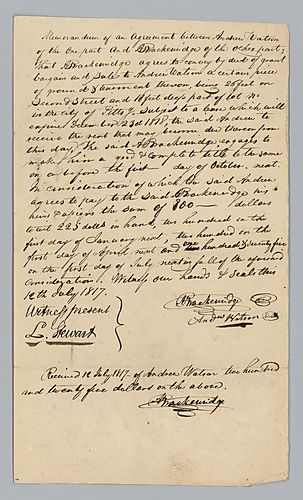 Memorandum of an Agreement between Andrew Watson
of the One part And HBrackenridge of the other part;
that Brackenridge agrees to convey by deed of grant
bargain and Sale to Andrew Watson a certain piece
of ground & tenement thereon, being 26 feet on
Second Street and 18 feet deep part of lot No
in the City of Pittsg. Subject to a lease which will
expire 23d 1818, the said Andrew to
receive the rent that may become due thereon from
this day. The said HBrackenridge engages to
make him a good & complete title to the same
on or before the first day of October next.
In consideration of which the said Andrew
agrees to pay to the said Brackenridge his
heirs & assigns the sum of 800 dollars
to wit 225 dolls in hand, two hundred on the
first day of January next, two hundred on the
first day of April next and one hundred & seventy five
on the first day of July next in full of the aforesaid
Consideration. Witness our hands & seals this
12th July 1817.
HBrackenridge
Witness present
Andw Watson
L. Stewart
Received 12 July 1817 of Andrew Watson two hundred
and twenty five dollars on the above.
HBrackenridge